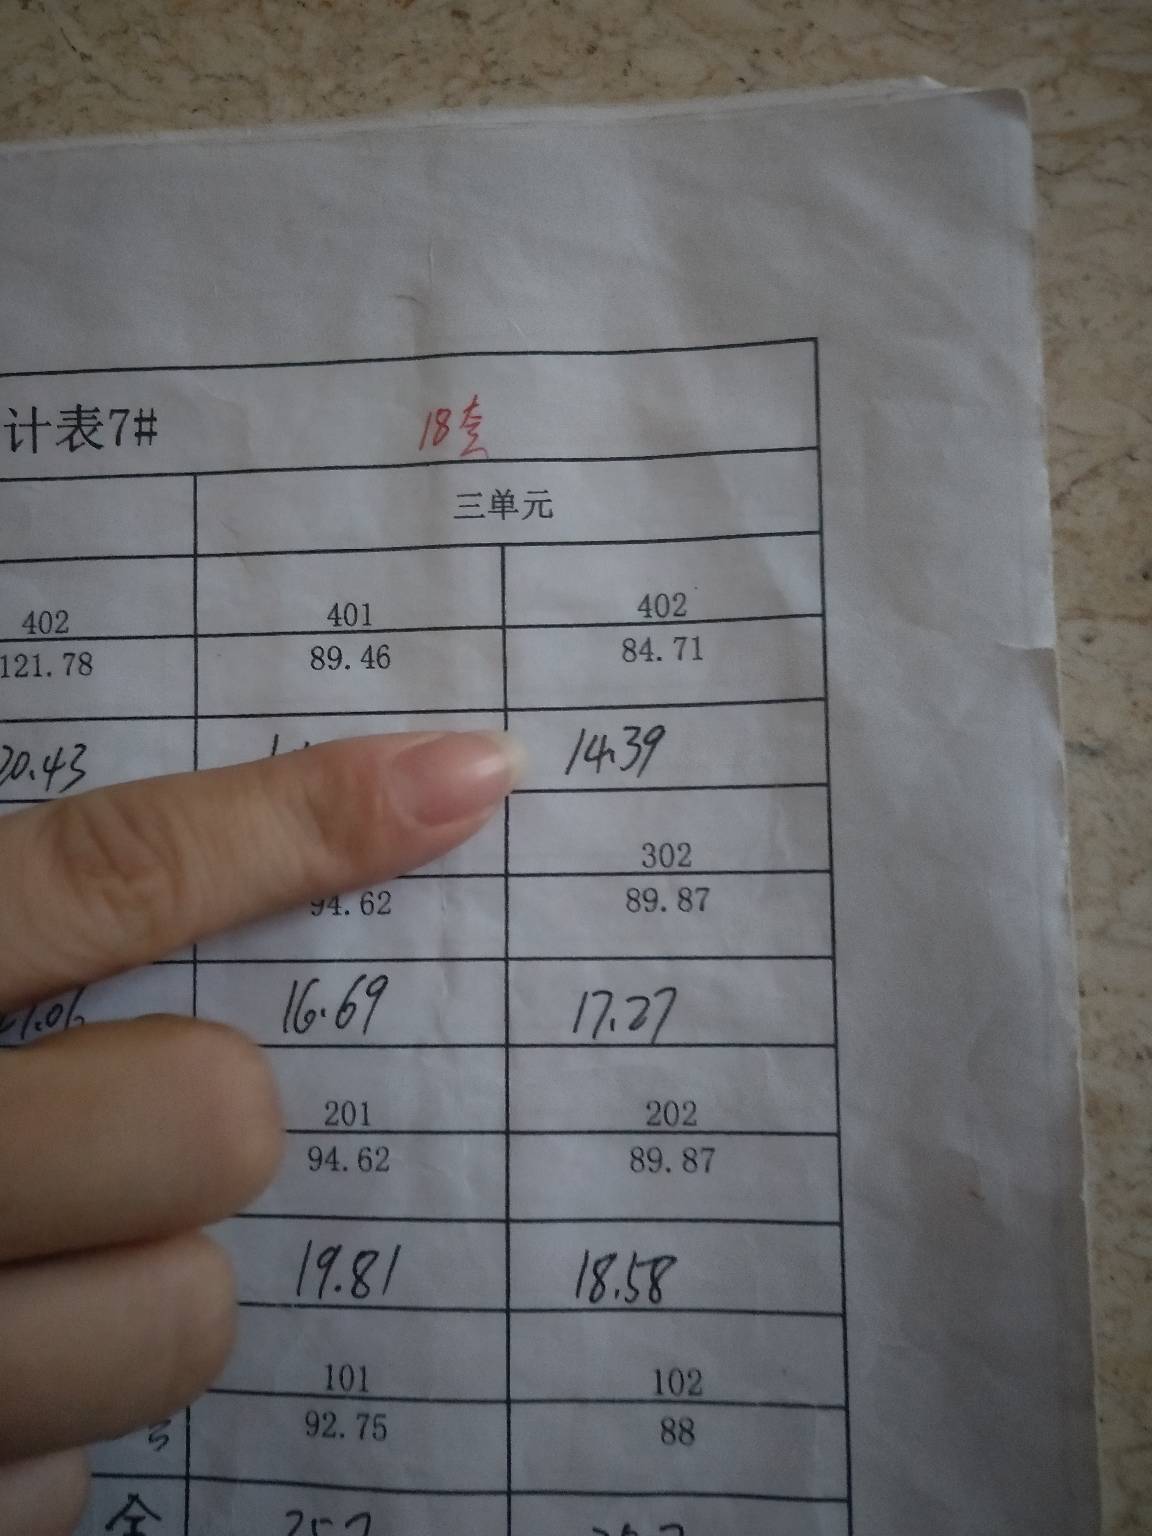 计表7# 18套
三单元
402 401 402
121.78 89.46 84.71
20.43 14.39
302
94.62 89.87
16.69 17.27
201 202
94.62 89.87
19.81 18.58
101 102
92.75 88
全